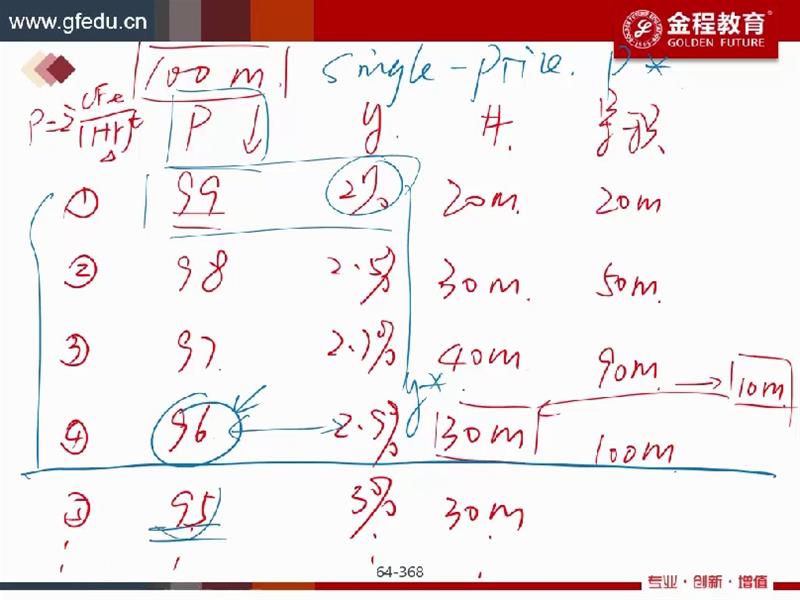 www.gfedu.cn
金程教育
GOLDEN FUTURE
100 m. single-price. P*
P ↓ y. 量
① 99 2% 20m 20m
② 98 2.5% 30m 50m
③ 97 2.7% 40m 90m → 10m
y*
④ 96 2.9% 30m 100m
⑤ 95 3% 30m
64-368
专业·创新·增值